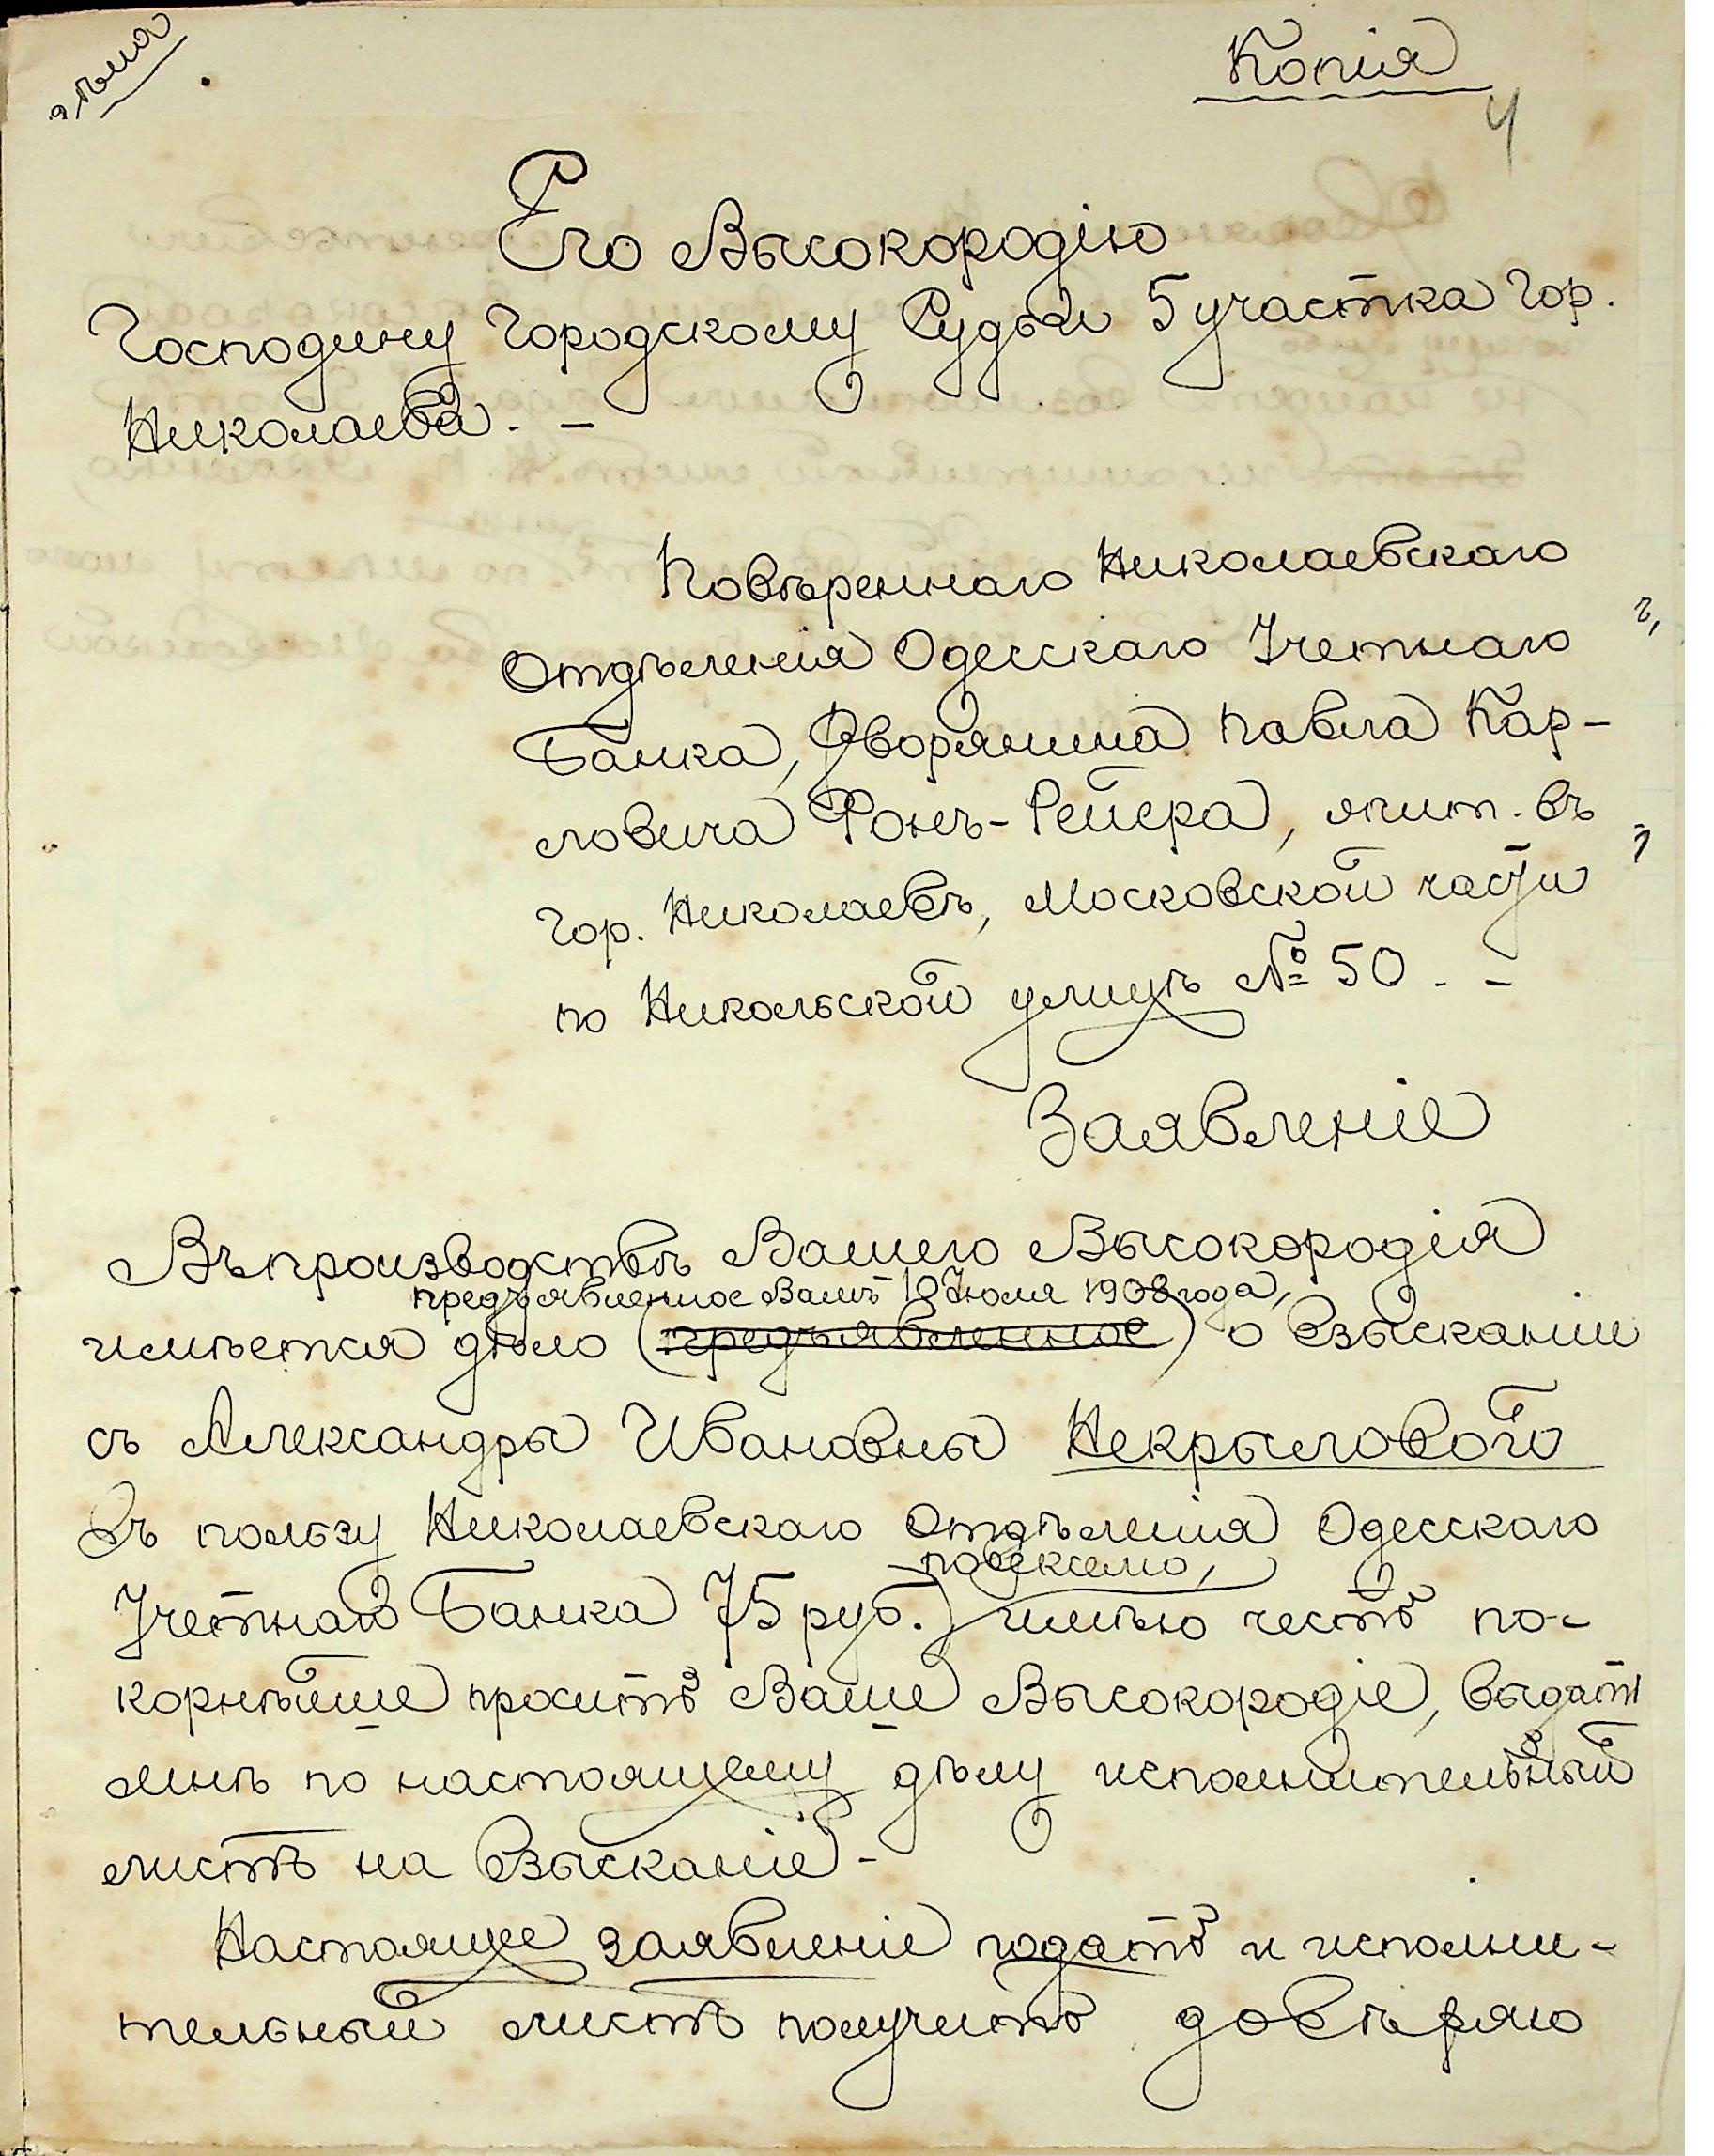 Копія
4
Его Высокородію
Господину Городскому Судьѣ 5 участка Гор.
Николаева. –
Повѣреннаго Николаевскаго
Отдѣленія Одесскаго Учетнаго
Банка, Дворянина Павла Кар-
ловича Фонъ-Рейера, жит. въ
Гор. Николаевѣ, Московской части
по Никольской улицѣ № 50. –
Заявленіе
Въ производствѣ Вашего Высокородія
предъявленное Вамъ 10 Іюля 1908 года,
имѣется дѣло (предъявленное) о взысканіи
съ Александры Ивановны Некрыловой
въ пользу Николаевскаго Отдѣленія Одесскаго
по векселю,
Учетнаго Банка 75 руб. имѣю честь по-
корнѣйше просить Ваше Высокородіе, выдать
мнѣ по настоящему дѣлу исполнительный
листъ на взысканіе. –
Настоящее заявленіе подать и исполни-
тельный листъ получить довѣряю